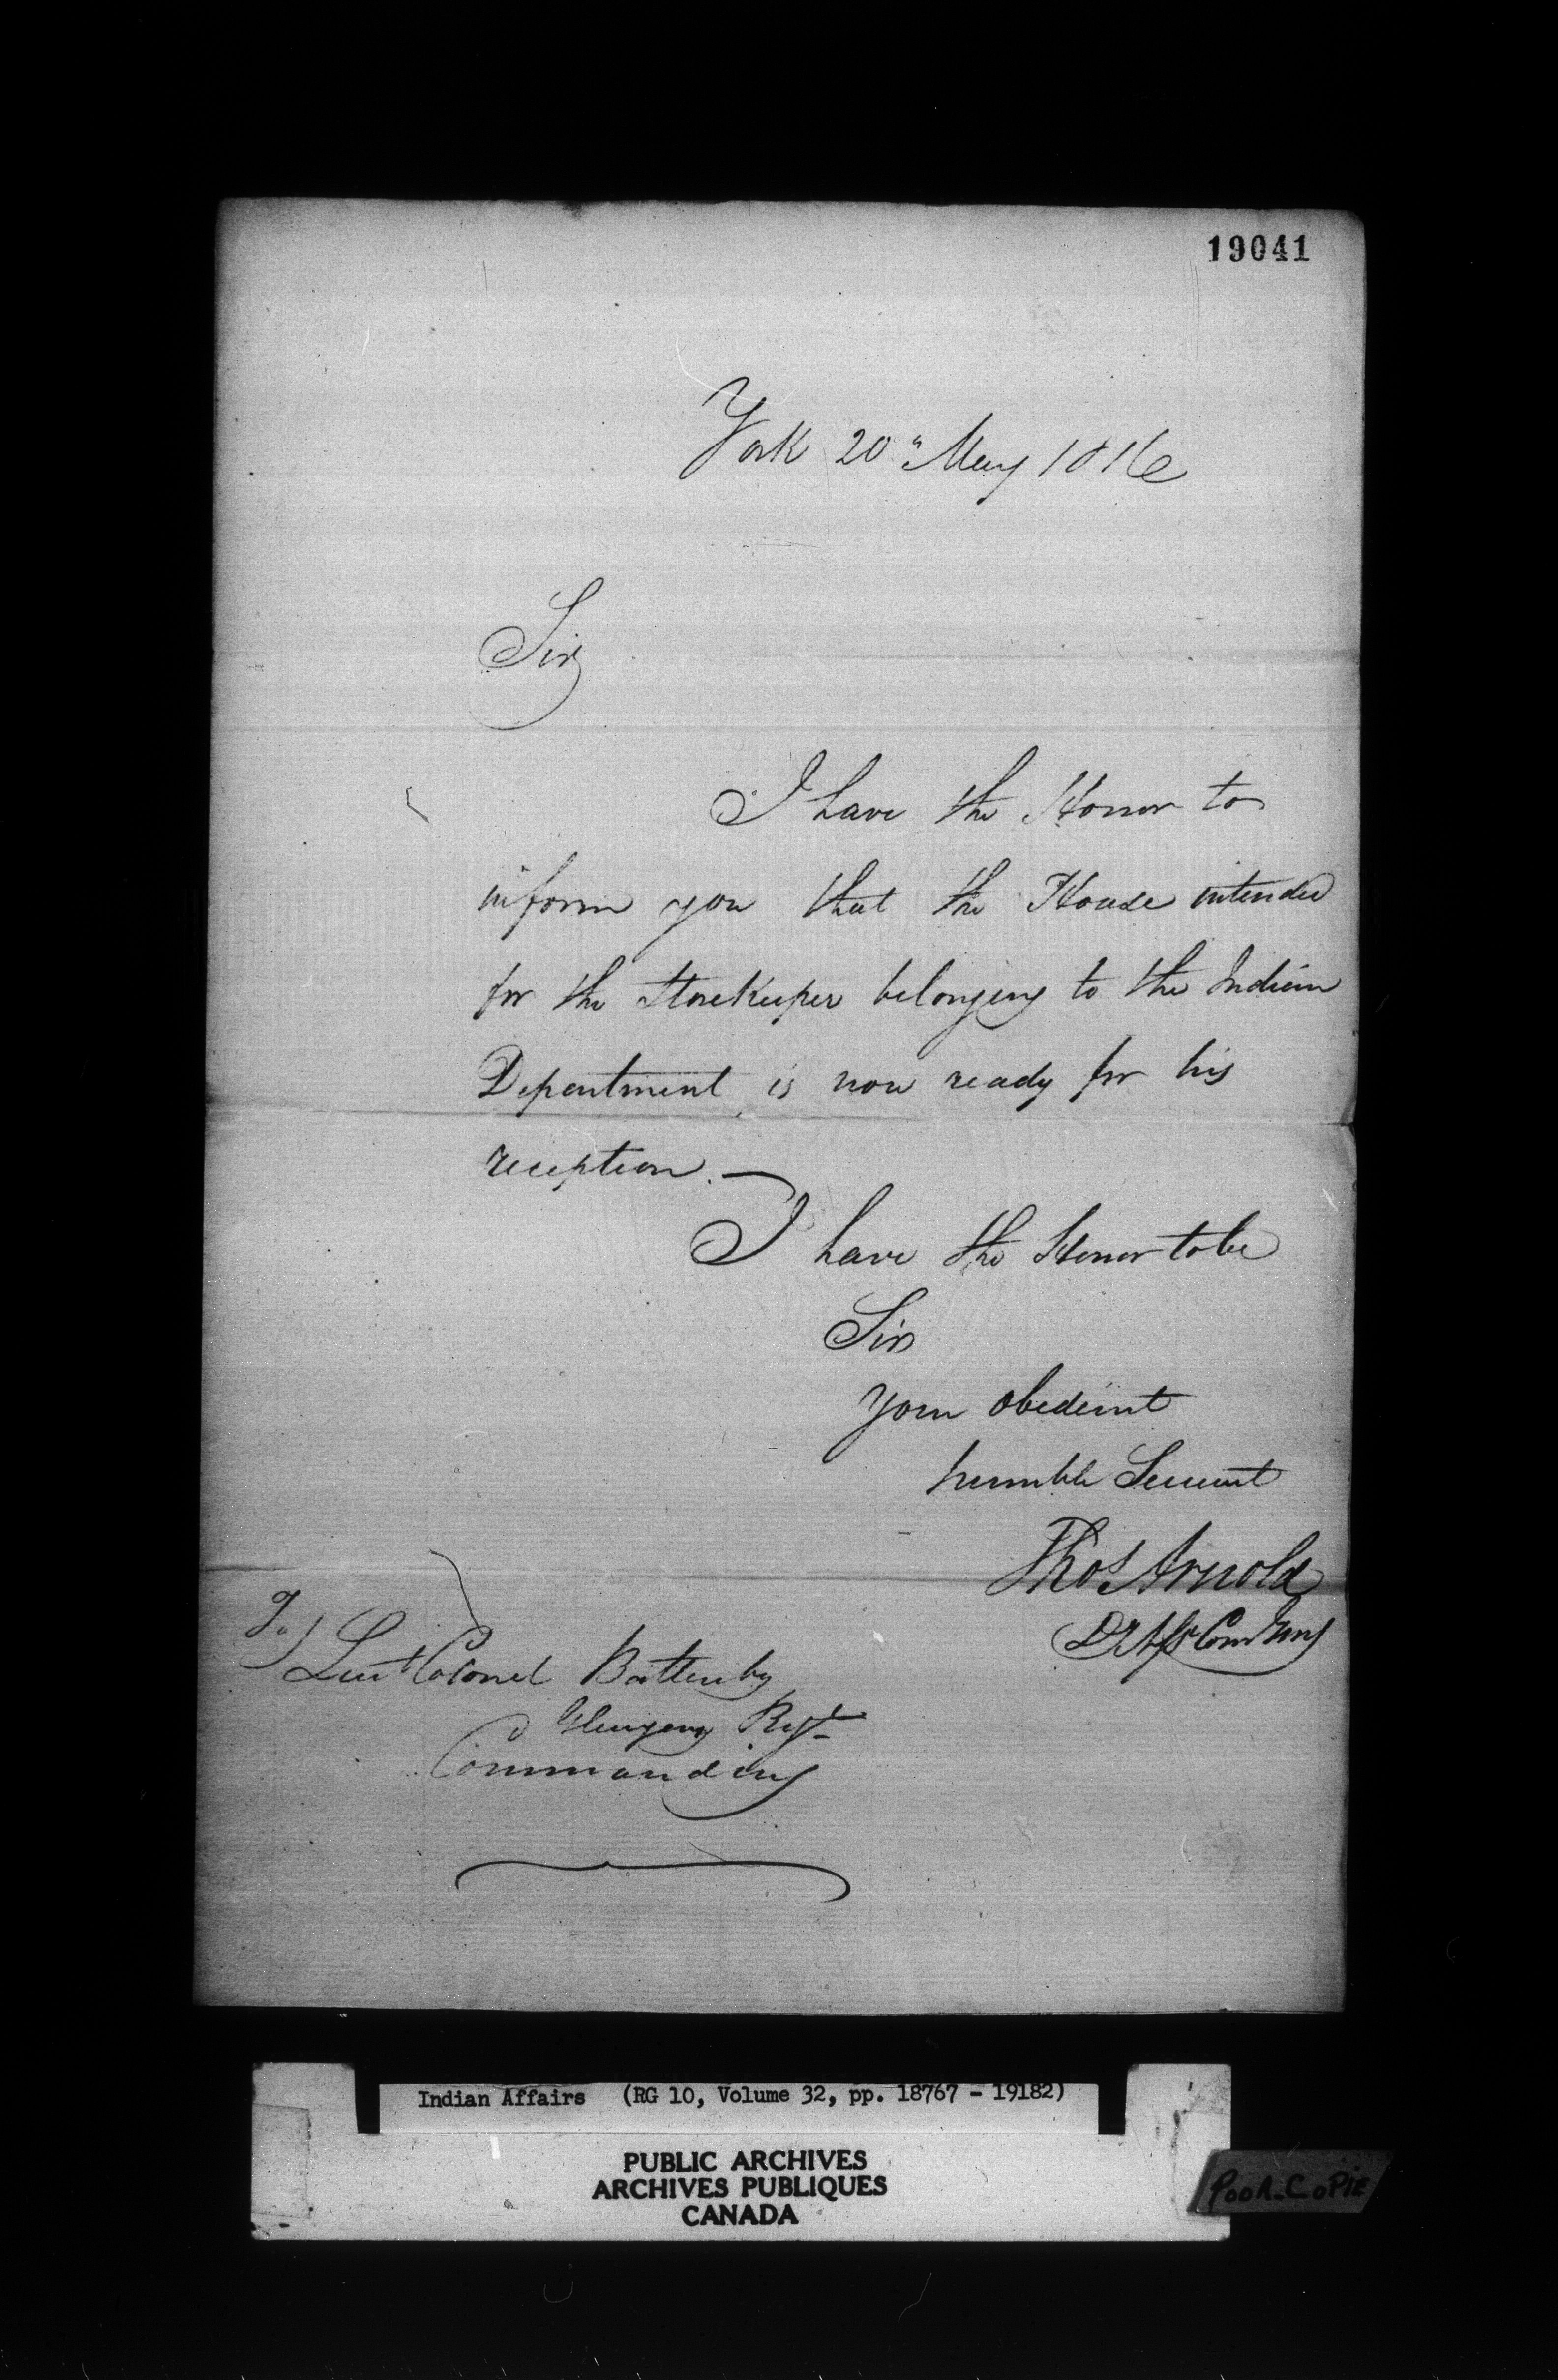 19041
York 20" May 1816
Sir
I have the Honor to
inform you that the House intended
for the StoreKeeper belonging to the Indian
Department, is now ready for his
reception. —
I have the Honor to be
Sir
Your obedient
humble Servant
Thos Arnold
Dy Asst Com Genl
To
Lieut Colonel Battersby
Glengary Regt
Commanding
Indian Affairs (RG 10, Volume 32, pp. 18767 - 19182)
PUBLIC ARCHIVES
ARCHIVES PUBLIQUES
CANADA
POOR COPIE